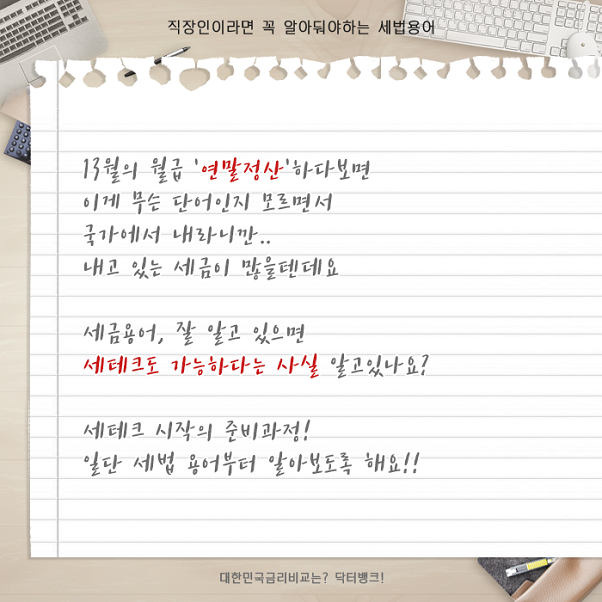 직장인이라면 꼭 알아둬야하는 세법용어
13월의 월급 '연말정산'하다보면
이게 무슨 단어인지 모르면서
국가에서 내라니깐..
내고 있는 세금이 많을텐데요
세금용어, 잘 알고 있으면
세테크도 가능하다는 사실 알고있나요?
세테크 시작의 준비과정!
일단 세법 용어부터 알아보도록 해요!!
대한민국금리비교는? 닥터뱅크!